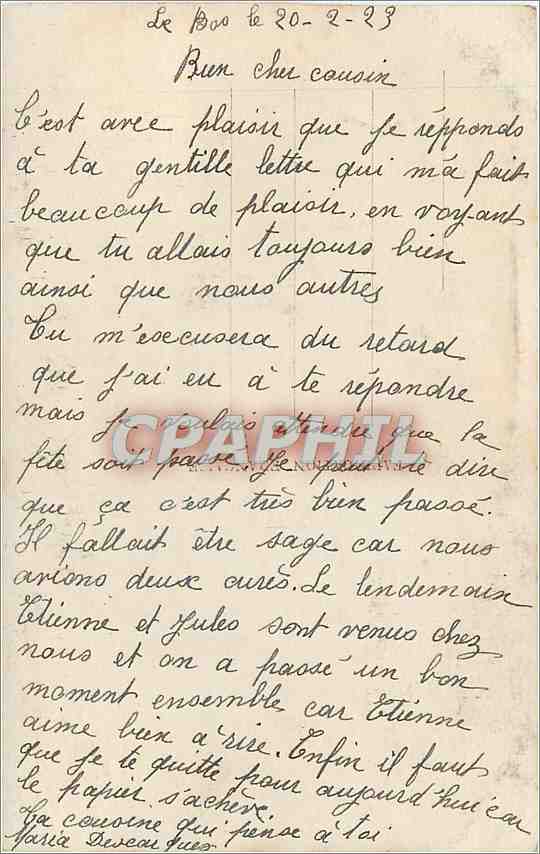 Le Bos le 20-2-23
Bien cher cousin
C'est avec plaisir que je répponds
à ta gentille lettre qui m'a fait
beaucoup de plaisir, en voyant
que tu allais toujours bien
ainsi que nous autres
Tu m'excusera du retard
que j'ai eu à te répondre
mais je voulais attendre que la
fête soit passé. Je peux te dire
que ça c'est très bien passé.
Il fallait être sage car nous
avions deux curés. Le lendemain
Etienne et Jules sont venus chez
nous et on a passé un bon
moment ensembles car Etienne
aime bien à rire. Enfin il faut
que je te quitte pour aujourd'hui car
le papier s'achève.
Ta cousine qui pense à toi
Maria Descarques
CPAPHIL